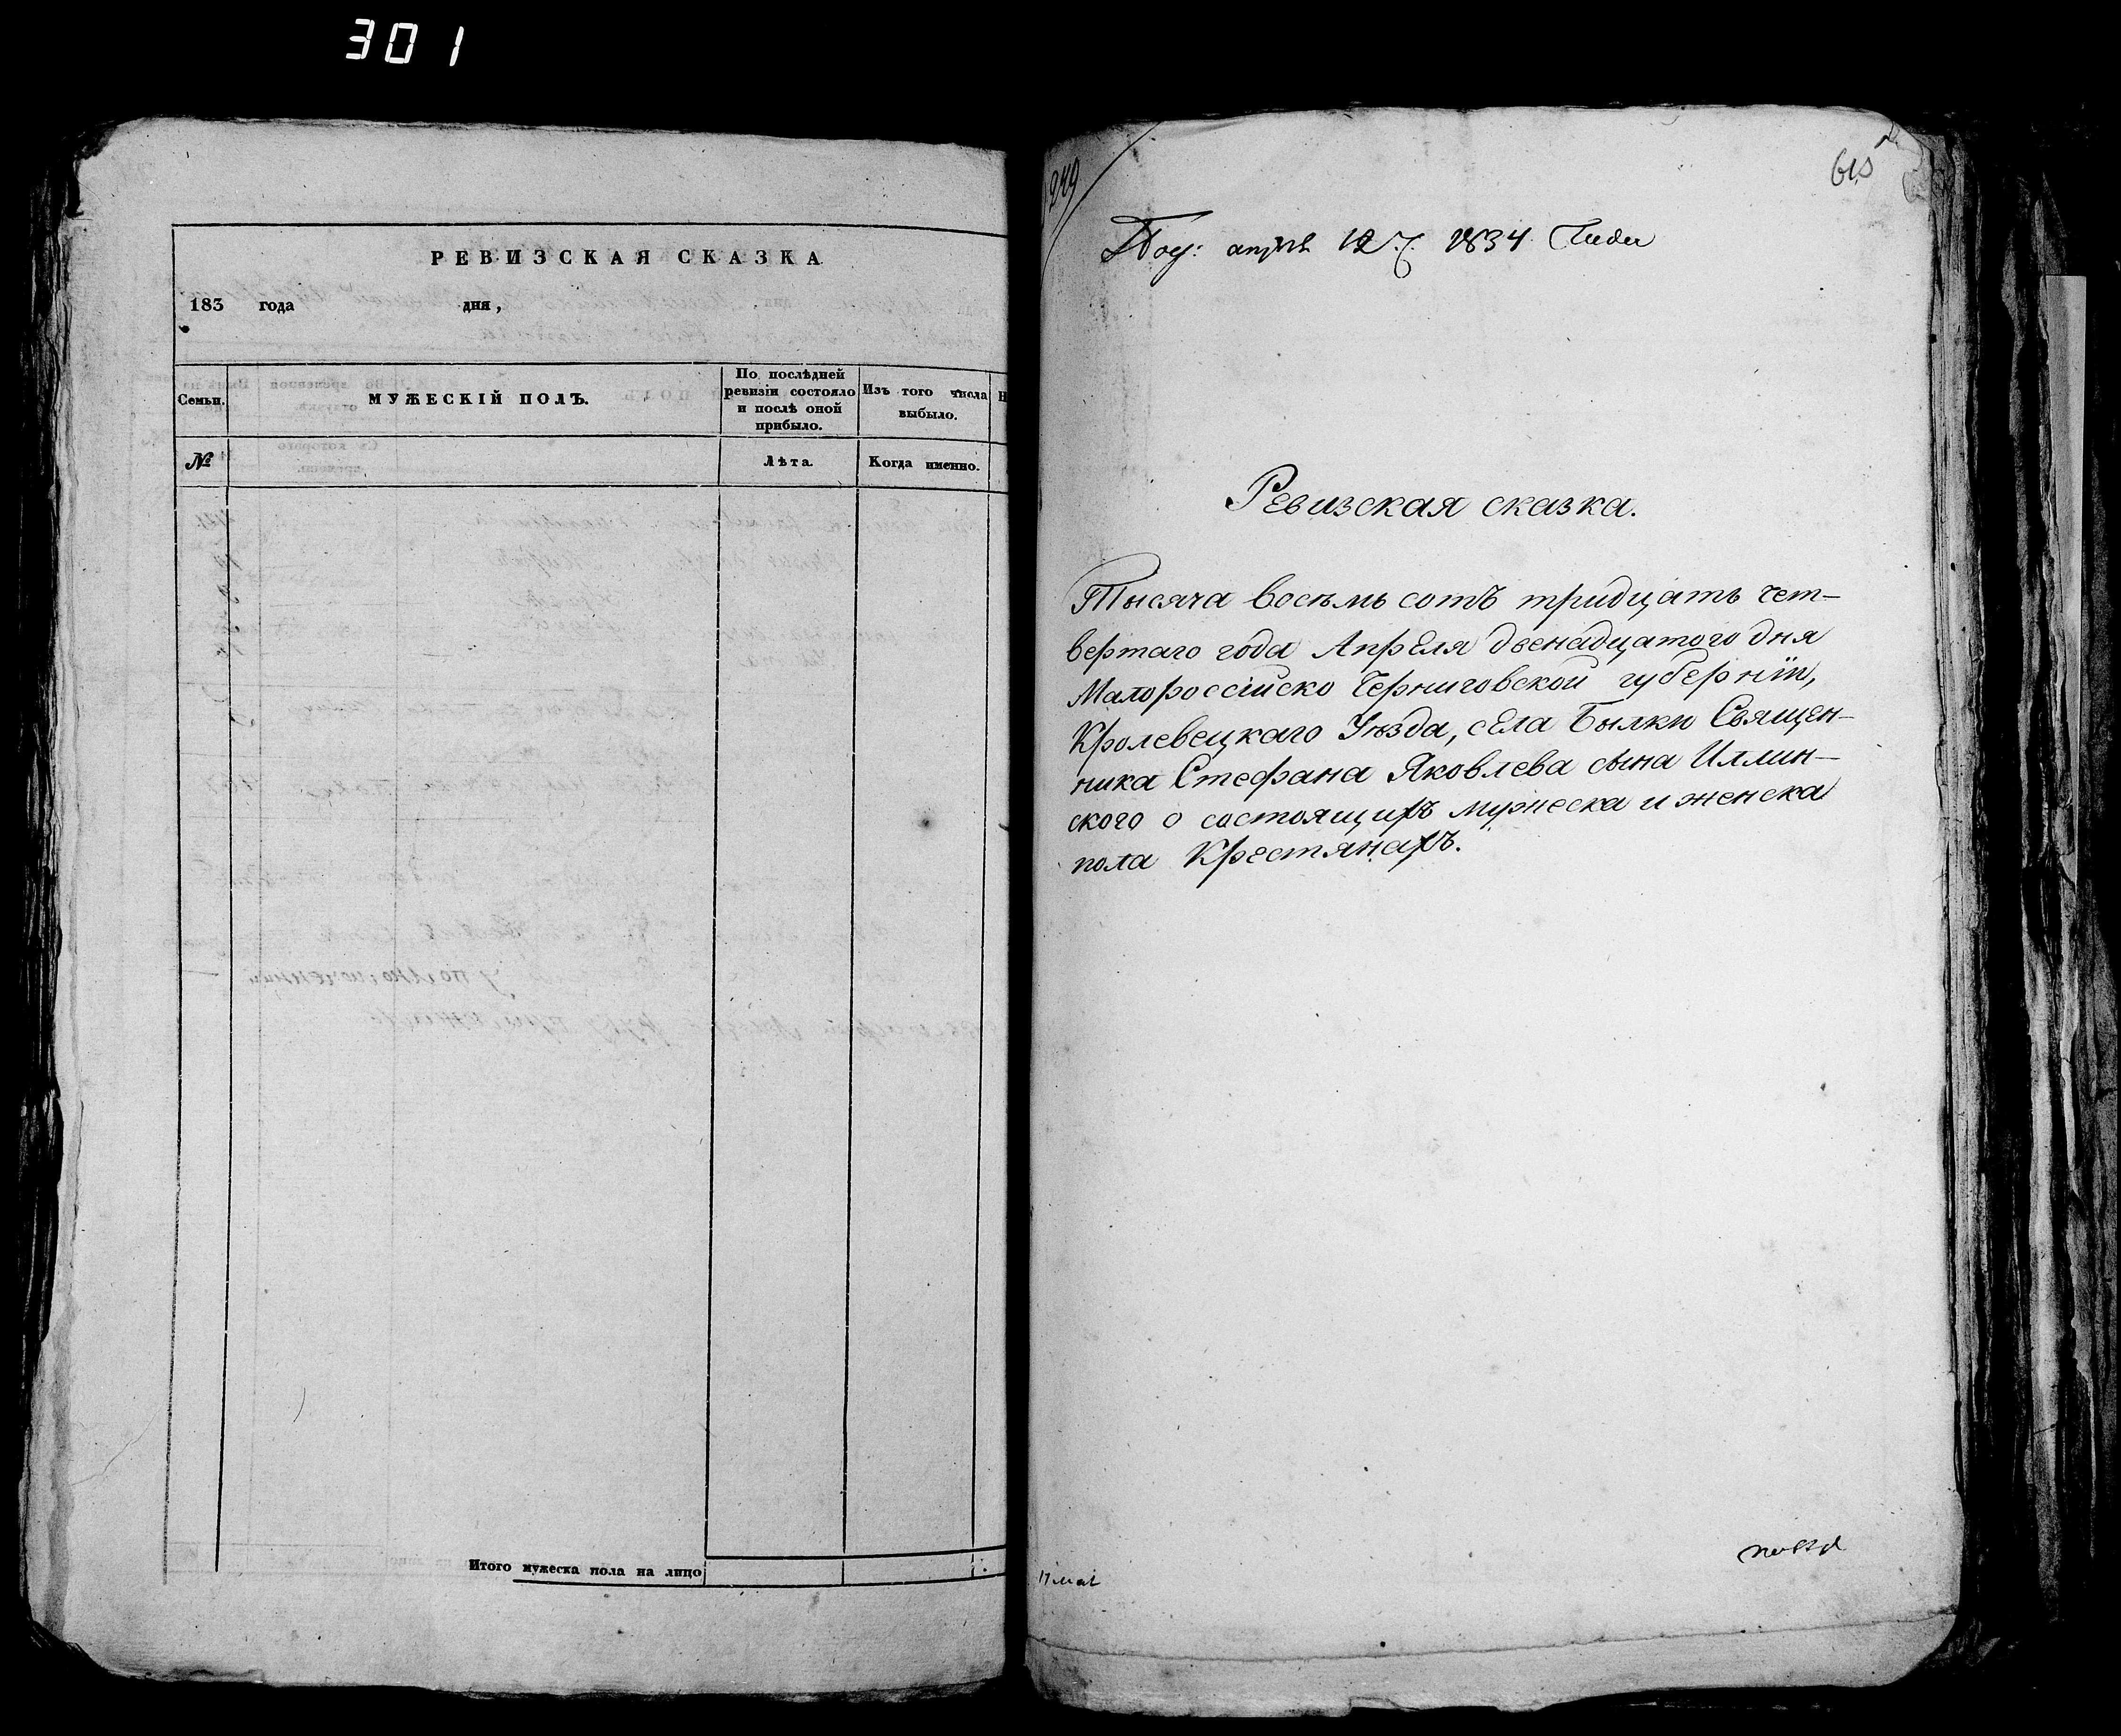 301
РЕВИЗСКАЯ СКАЗКА
183 года дня,
Семьи.
МУЖЕСКІЙ ПОЛЪ.
По послѣдней
ревизіи состояло
и послѣ оной
прибыло.
Изъ того числа
выбыло.
№
Лѣта.
Когда именно.
Итого мужеска пола на лицо
249
615
Пол: апрѣл 12 1834
Ревизская сказка.
Тысяча восѣмь сотъ тридцать чет-
вертаго года Апреля двенадцатого дня
Малороссійско Черниговской губерніи,
Кролевецкаго Уѣзда, села Былки Священ-
ника Стефана Яковлева сына Иллин-
ского о состоящихъ мужеска и женска
пола Крестянахъ.